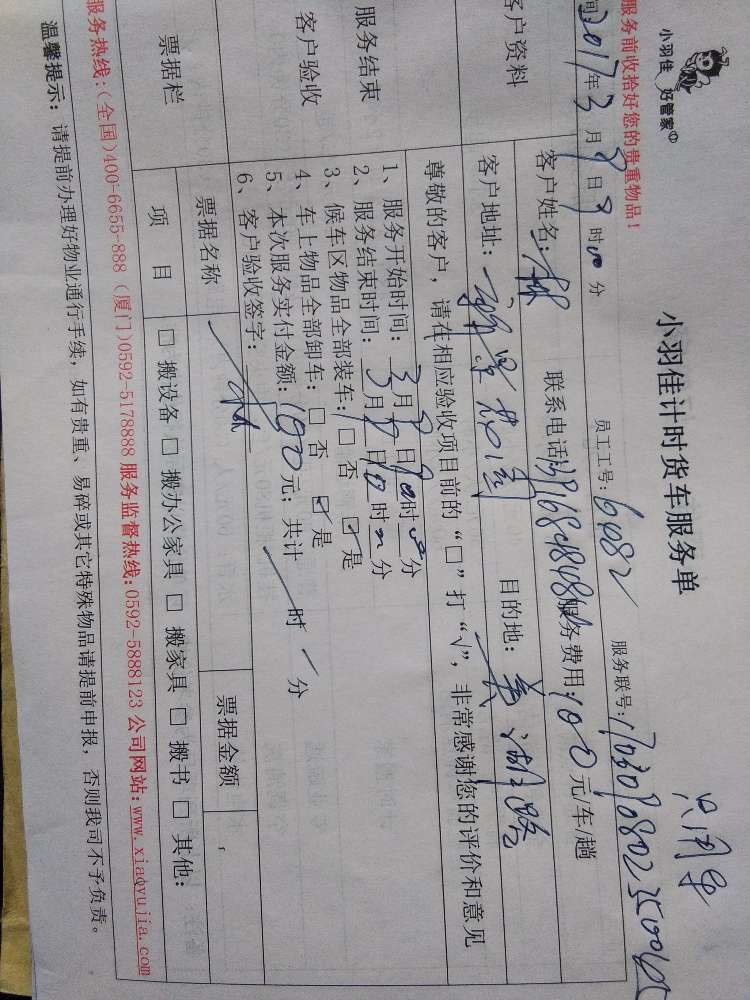 小羽佳 好管家
小羽佳计时货车服务单
只用车
服务前收拾好您的贵重物品！
员工工号：6082 服务联号：
间2017年3月9日9时00分
客户资料
客户姓名：林 联系电话： 服务费用：100元/车/趟
客户地址： 目的地：
尊敬的客户，请在相应验收项目前的“□”打“√”，非常感谢您的评价和意见
服务结束
客户验收
1、服务开始时间：3月9日 时 分
2、服务结束时间：3月9日 时 分
3、候车区物品全部装车：□ 否 ☑ 是
4、车上物品全部卸车：□ 否 ☑ 是
5、本次服务实付金额：100元；共计 时 分
6、客户验收签字：林
票据栏
票据名称 票据金额
项 目 □ 搬设备 □ 搬办公家具 □ 搬家具 □ 搬书 □ 其他：
服务热线：（全国）400-6655-888（厦门）0592-5178888 服务监督热线：0592-5888123 公司网站：www.xiaoyujia.com
温馨提示：请提前办理好物业通行手续，如有贵重、易碎或其它特殊物品请提前申报，否则我司不予负责。